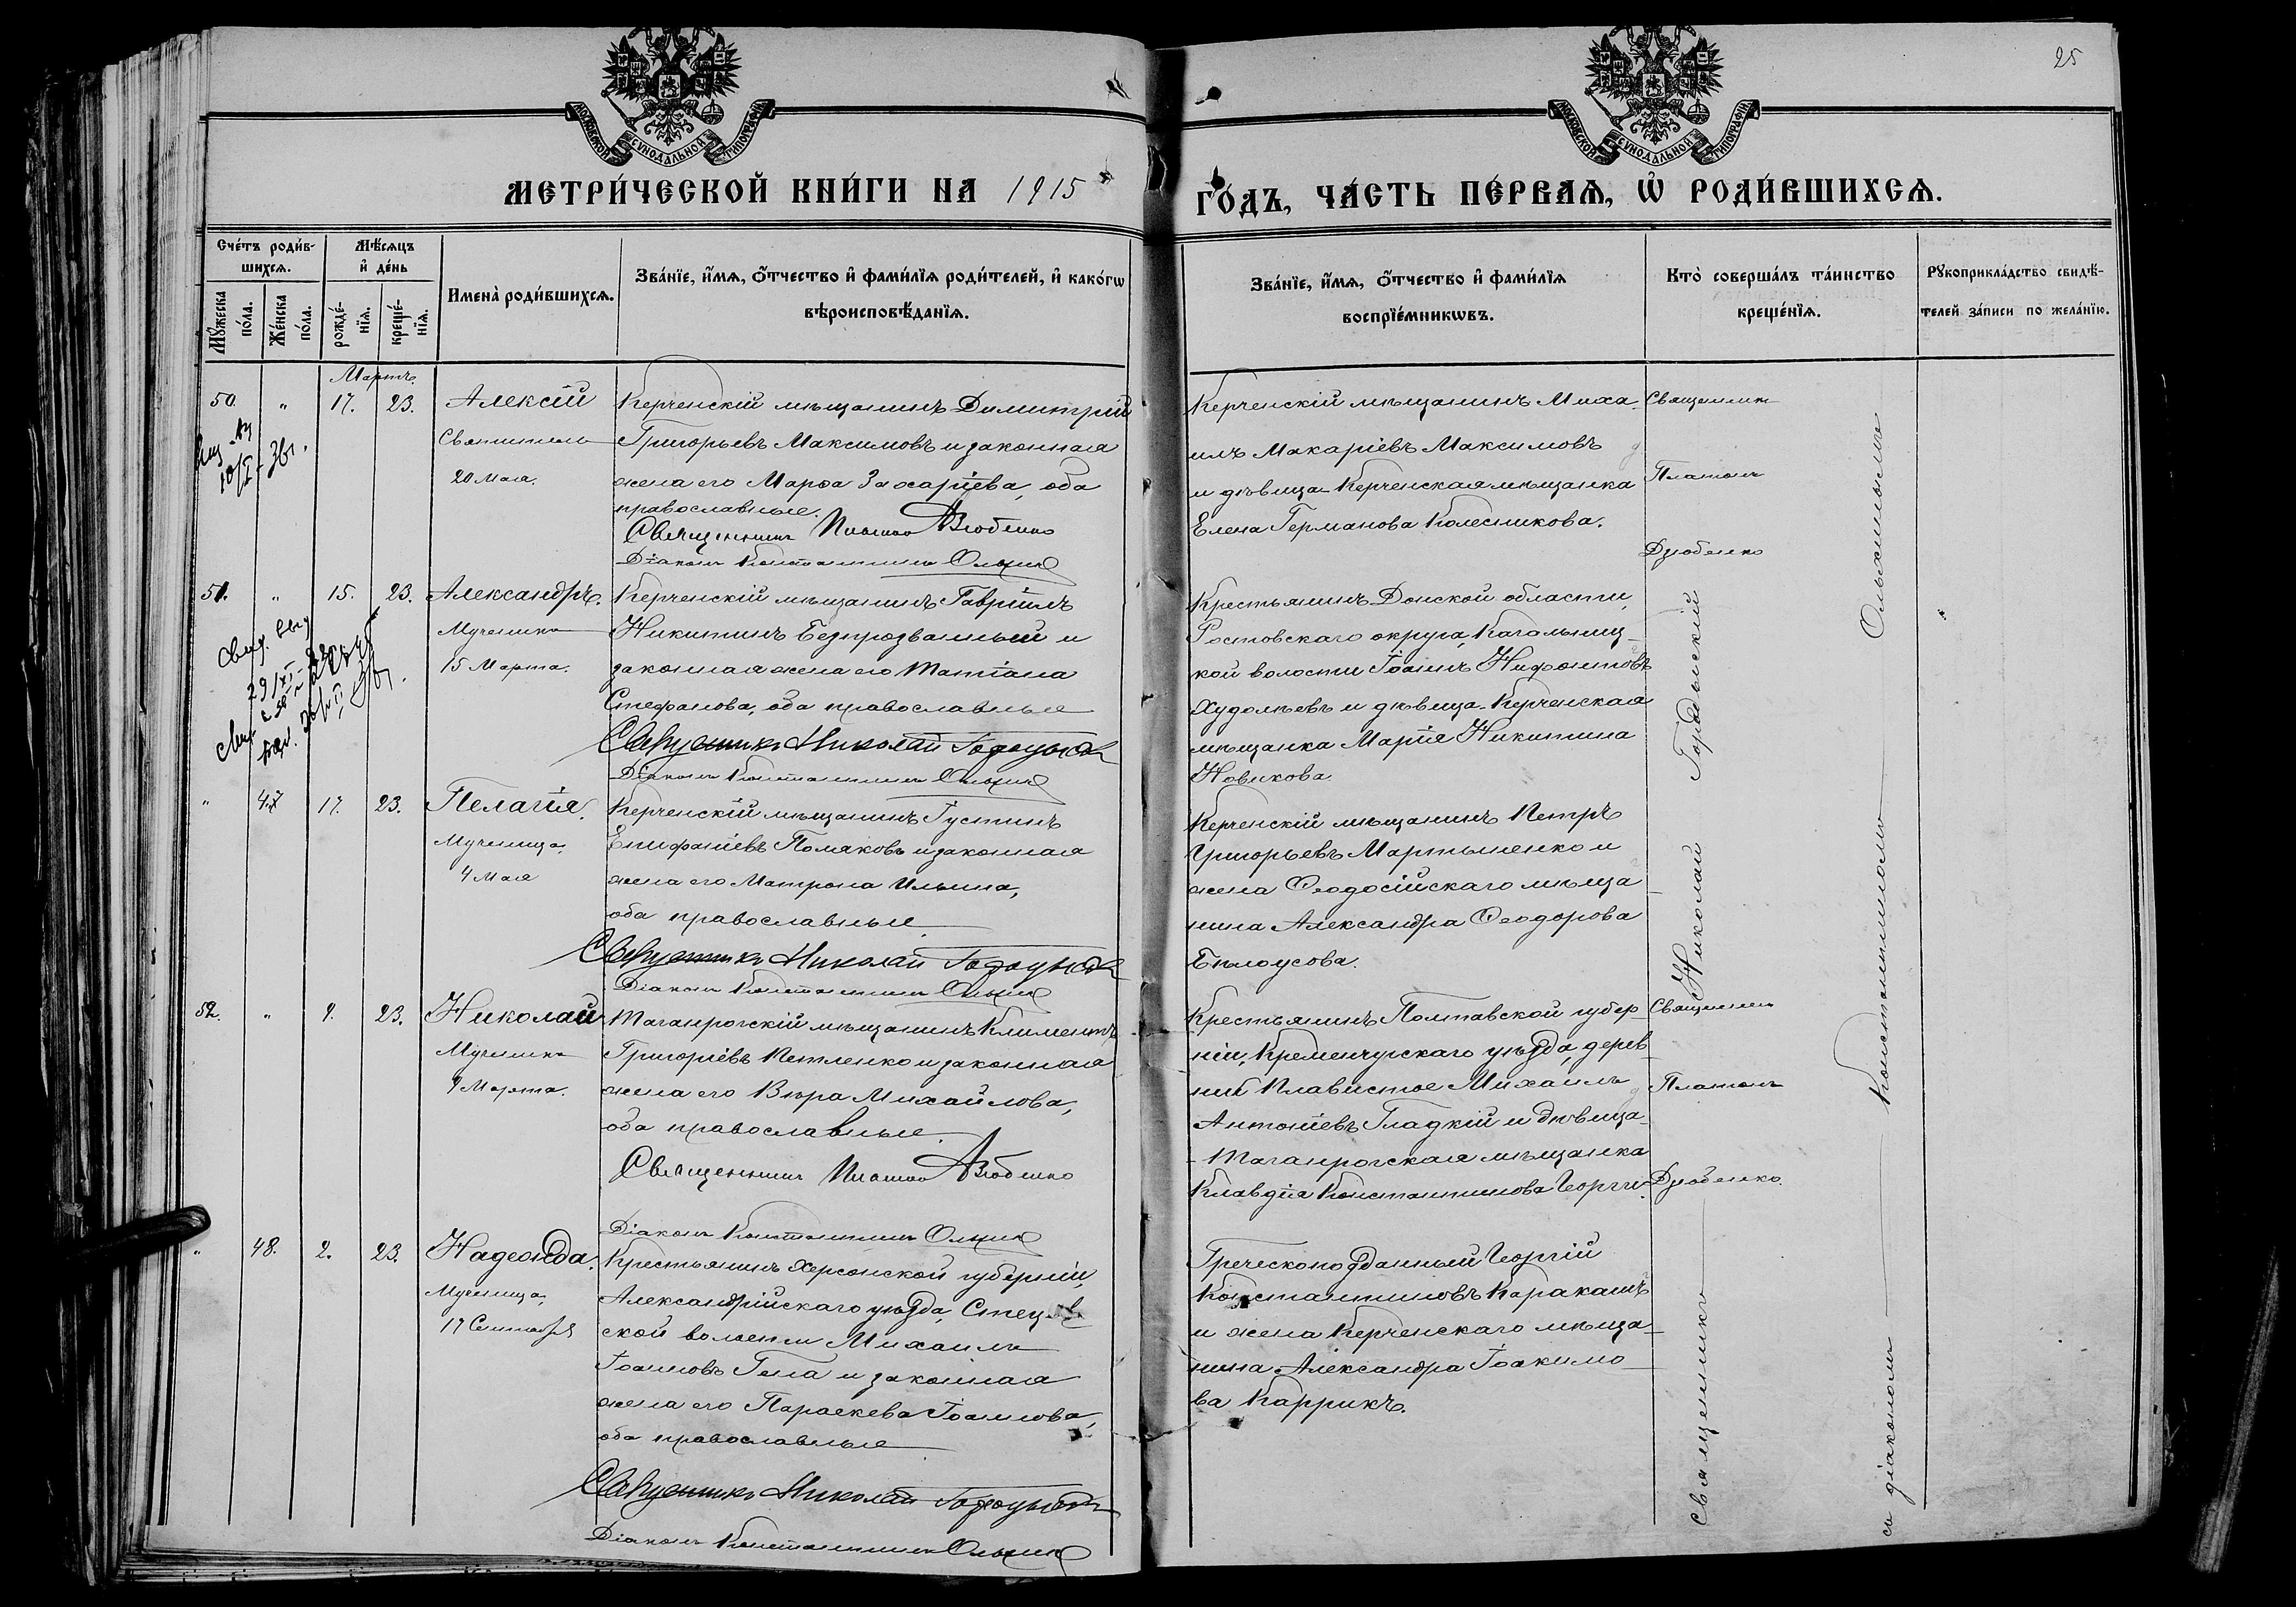 25
МОСКОВСКОЙ СѴНОДАЛЬНОЙ ТИПОГРАФІИ
МОСКОВСКОЙ СѴНОДАЛЬНОЙ ТИПОГРАФІИ
МЕТРИ́ЧЕСКОЙ КНИ́ГИ НА 1915
ГО́ДЪ, ЧА́СТЬ ПЕ́РВАЯ, Ѡ҆ РОДИ́ВШИХСЯ.
Сче́тъ роди́в-
шихся.
Мѣ́сяцъ
и҆ де́нь
Мꙋ́жеска
по́ла.
Же́нска
по́ла.
рожде́-
нїя.
креще́-
нїя.
Имена̀ роди́вшихся.
Зва́нїе, и҆́мя, ѻ҆́тчество и҆ фами́лїя роди́телей, и҆ како́гѡ
вѣроисповѣ́данїя.
Зва́нїе, и҆́мя, ѻ҆́тчество и҆ фами́лїя
воспрїе́мникѡвъ.
Кто̀ соверша́лъ та́инство
креще́нїя.
Рꙋкоприкла́дство свидѣ́-
телей за́писи по жела́нїю.
Мартъ.
50. " 17. 23. Алексій
Святителя
20 Мая.
Керченскій мѣщанинъ Димитрій
Григорьевъ Максимовъ и законная
жена его Марѳа Захаріева, оба
православные.
Священникъ Платонъ Дзюбенко
Діаконъ Константинъ
Керченскій мѣщанинъ Миха-
илъ Макаріевъ Максимовъ
и дѣвица Керченская мѣщанка
Елена Германова Колесникова.
Священникъ
Платонъ
Дзюбенко
51. " 15. 23. Александръ.
Мученика
15 Марта.
Керченскій мѣщанинъ Гавріилъ
Никитинъ Безпрозванный и
законная жена его Татіана
Стефанова, оба православные
Священникъ Николай
Діаконъ Константинъ
Крестьянинъ Донской области,
Ростовскаго округа, Кагальниц-
кой волости Іоаннъ Нифонтовъ
Худолѣевъ и дѣвица Керченская
мѣщанка Марія Никитина
Новикова
" 47 17. 23. Пелагія.
Мученица
4 Мая
Керченскій мѣщанинъ Іустинъ
Епифаніевъ Поляковъ и законная
жена его Матрона Ильина,
оба православные
Священникъ Николай
Діаконъ Константинъ
Керченскій мѣщанинъ Петръ
Григорьевъ Мартыненко и
жена Ѳеодосійскаго мѣща-
нина Александра Ѳеодорова
Бѣлоусова.
52. " 9. 23. Николай
Мученика
9 Марта.
Таганрогскій мѣщанинъ Климентъ
Григоріевъ Петленко и законная
жена его Вѣра Михайлова,
оба православные.
Священникъ Платонъ Дзюбенко
Діаконъ Константинъ
Крестьянинъ Полтавской губер-
ніи, Кременчугскаго уѣзда, дерев
ни Плавистое Михаилъ
Антоніевъ Гладкій и дѣвица
Таганрогская мѣщанка
Клавдія Константинова
Священникъ
Платонъ
Дзюбенко.
" 48. 2. 23. Надежда.
Мученица
17 Сентября
Крестьянинъ Херсонской губерніи,
Александрійскаго уѣзда,
ской волости Михаилъ
Іоанновъ и законная
жена его Параскева Іоаннова,
оба православные
Священникъ Николай
Діаконъ Константинъ
Греческоподданный Георгій
Константиновъ
и жена Керченскаго мѣща-
нина Александра Іоакимо-
ва Каррикъ.
Священникъ Николай
съ діакономъ Константиномъ